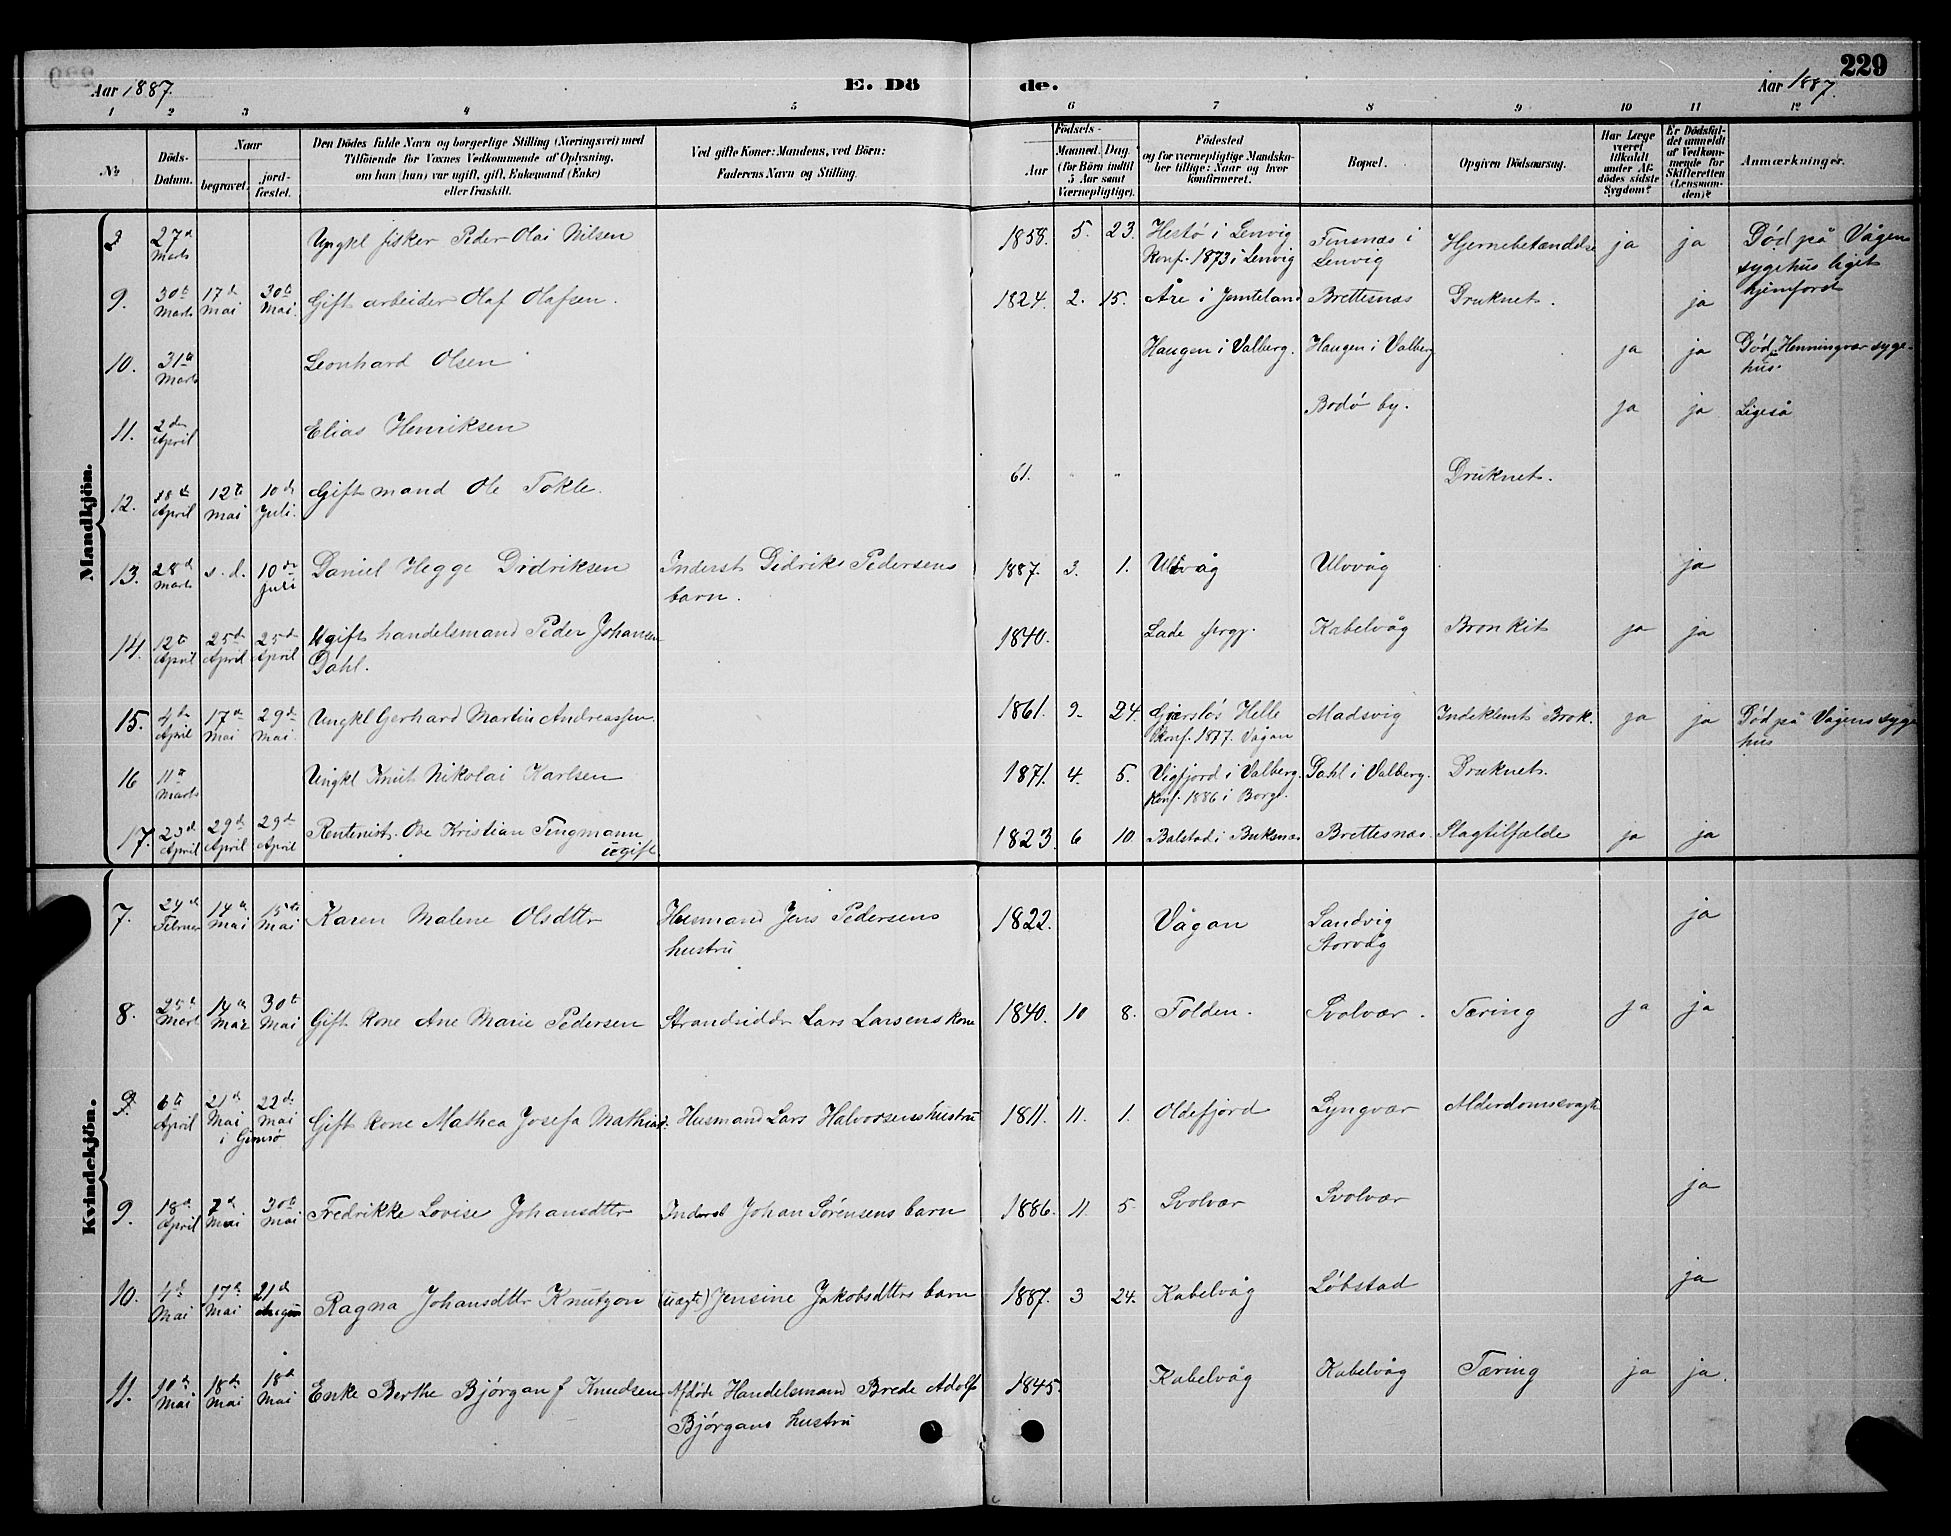 229
Aar 1887.
E. Dö
de.
Aar 1887.
1 2 3 4 5 6 7 8 9 10 11 12
No.
Döds-
Datum.
Naar
begravet.
jord-
fæstet.
Den Dödes fulde Navn og borgerlige Stilling (Næringsvei) med
Tilföiende for Voxnes Vedkommende af Oplysning,
om han (hun) var ugift, gift, Enkemand (Enke)
eller fraskilt.
Ved gifte Koner: Mandens, ved Börn:
Faderens Navn og Stilling.
Födsels-
Aar
Maaned. Dag.
(for Börn indtil
5 Aar samt
Værnepligtige).
Födested
og for værnepligtige Mandska-
ber tillige: Naar og hvor
konfirmeret.
Bopæl.
Opgiven Dödsaarsag.
Har Læge
været
tilkaldt
under Af-
dödes sidste
Sygdom?
Er Dödsfal-
det anmeldt
af Vedkom-
mende for
Skifteretten
(Lensman-
den)?
Anmærkninger.
Mandkjön.
27de Marts Ungkl fisker Peder Olai Nilsen 1858. 5. 23. Hestø i Lenvig Finsnæs i Hjernebetændelse ja ja Død på Vågens
Konf. 1873 i Lenvig Lenvig sygehus liget
hjemført
9. 30te Marts 17de Mai 30te Mai. Gift arbeider Olaf Olafsen. 1824. 2. 15. Åre i Jemteland Brettesnæs Druknet. ja
10. 31te Marts Leonhard Olsen Haugen i Valberg. Haugen i Valberg ja ja Død på Henningvær syge-
hus.
11. 2den April Elias Henriksen Bodø by. ja ja Ligeså
12. 18de April 12te Mai 10de Juli. Gift mand Ole Tokle. 61. " " Druknet.
13. 28de Marts s. d. 10de Juli Daniel Hegge Didriksen Inderst Didrik Pedersens 1887. 3. 1. Ulvåg Ulvvåg ja
barn.
14. 12te April 25de April 25de April Ugift handelsmand Peder Johansen 1840. Lade prgj. Kabelvåg Bronkit ja ja
Dahl.
15. 4de April 17de Mai 29de Mai. Ungkl Gerhard Martin Andreassen. 1861. 9. 24. Gjersløs Helle Madsvig Indeklemt Brok. ja ja Død på Vågens syge
Konf. 1877. Vågan hus
16 11te Marts Ungkl Knut Nikolai Karlsen 1871. 4. 5. Vigfjord i Valberg. Dahl i Valberg. Druknet.
Konf. 1886 i Borge.
17. 23de April 29de April 29de April Rentenist. Ove Kristian Tingmann 1823. 6 10. Balstad i Buksnæs Brettesnæs. Slagtilfælde ja ja
ugift
Kvindekjön.
7. 24de Februar 14de Mai 15de Mai Karen Malene Olsdttr Husmand Jens Pedersens 1822. Vågan Sandvig ja
hustru Storvåg
8. 25de Marts 14de Mai 30te Mai Gift kone Ane Marie Pedersen Strandsidder Lars Larsens kone 1840. 10 8. Folden. Svolvær. Tæring ja ja
6te April 21de Mai 22de Mai Gift kone Mathea Josefa Mathiasd. Husmand Lars Halvorsens hustru 1811. 11. 1. Oldefjord Lyngvær Alderdomssvagh
i Gimsø
9. 18de April 7de Mai 30te Mai Fredrikke Lovise Johansdttr Inderst Johan Sørensens barn 1886. 11. 5. Svolvær Svolvær ja
10. 4de Mai 17de Mai 21de August Ragna Johansdttr Knutzon (uægte) Jensine Jakobsdttrs barn 1887. 3 24. Kabelvåg Løbstad ja
11. 10de Mai 18de Mai 18de Mai Enke Berthe Bjørgan f Knudsen Afdøde Handelsmand Brede Adolf 1845. Kabelvåg Kabelvåg Tæring ja ja.
Bjørgans hustru